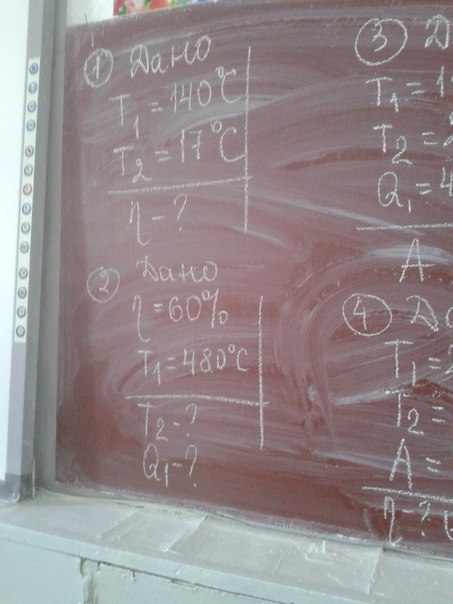 ① Дано
T₁ = 140°C
T₂ = 17°C
η - ?
② Дано
η = 60%
T₁ = 480°C
T₂ - ?
Q₁ - ?
③
T₁ = 1
T₂ =
Q₁ = 4
A
④
T₁ =
T₂ =
A =
η - ?